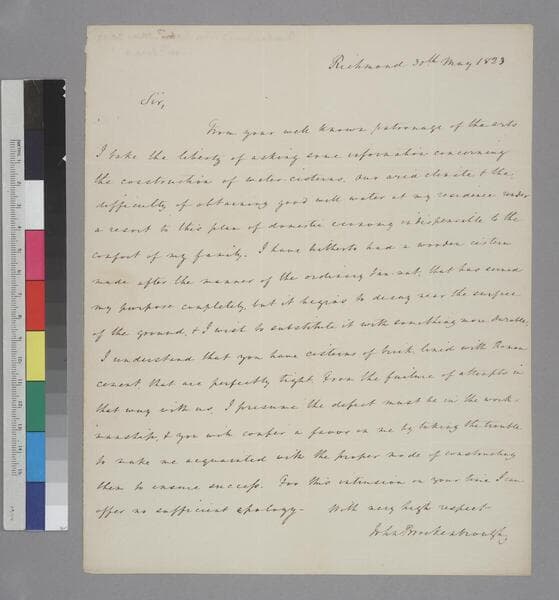 Richmond 30th May 1823
Sir,
From your well known patronage of the arts
I take the liberty of asking some information concerning
the construction of water-cisterns. Our arid climate & the
difficulty of obtaining good well water at my residence render
a resort to this plan of domestic economy indispensible to the
comfort of my family. I have hitherto had a wooden cistern
made after the manner of the ordinary tan-vat, that has served
my purpose completely, but it begins to decay near the surface
of the ground, & I wish to substitute it with something more durable.
I understand that you have cisterns of brick lined with Roman
cement that are perfectly tight. From the failure of attempts in
that way with us, I presume the defect must be in the work-
manship, & you will confer a favor on me by taking the trouble
to make me acquainted with the proper mode of constructing
them to ensure success. For this intrusion on your time I can
offer no sufficient apology- With very high respect
John Brockenbrough